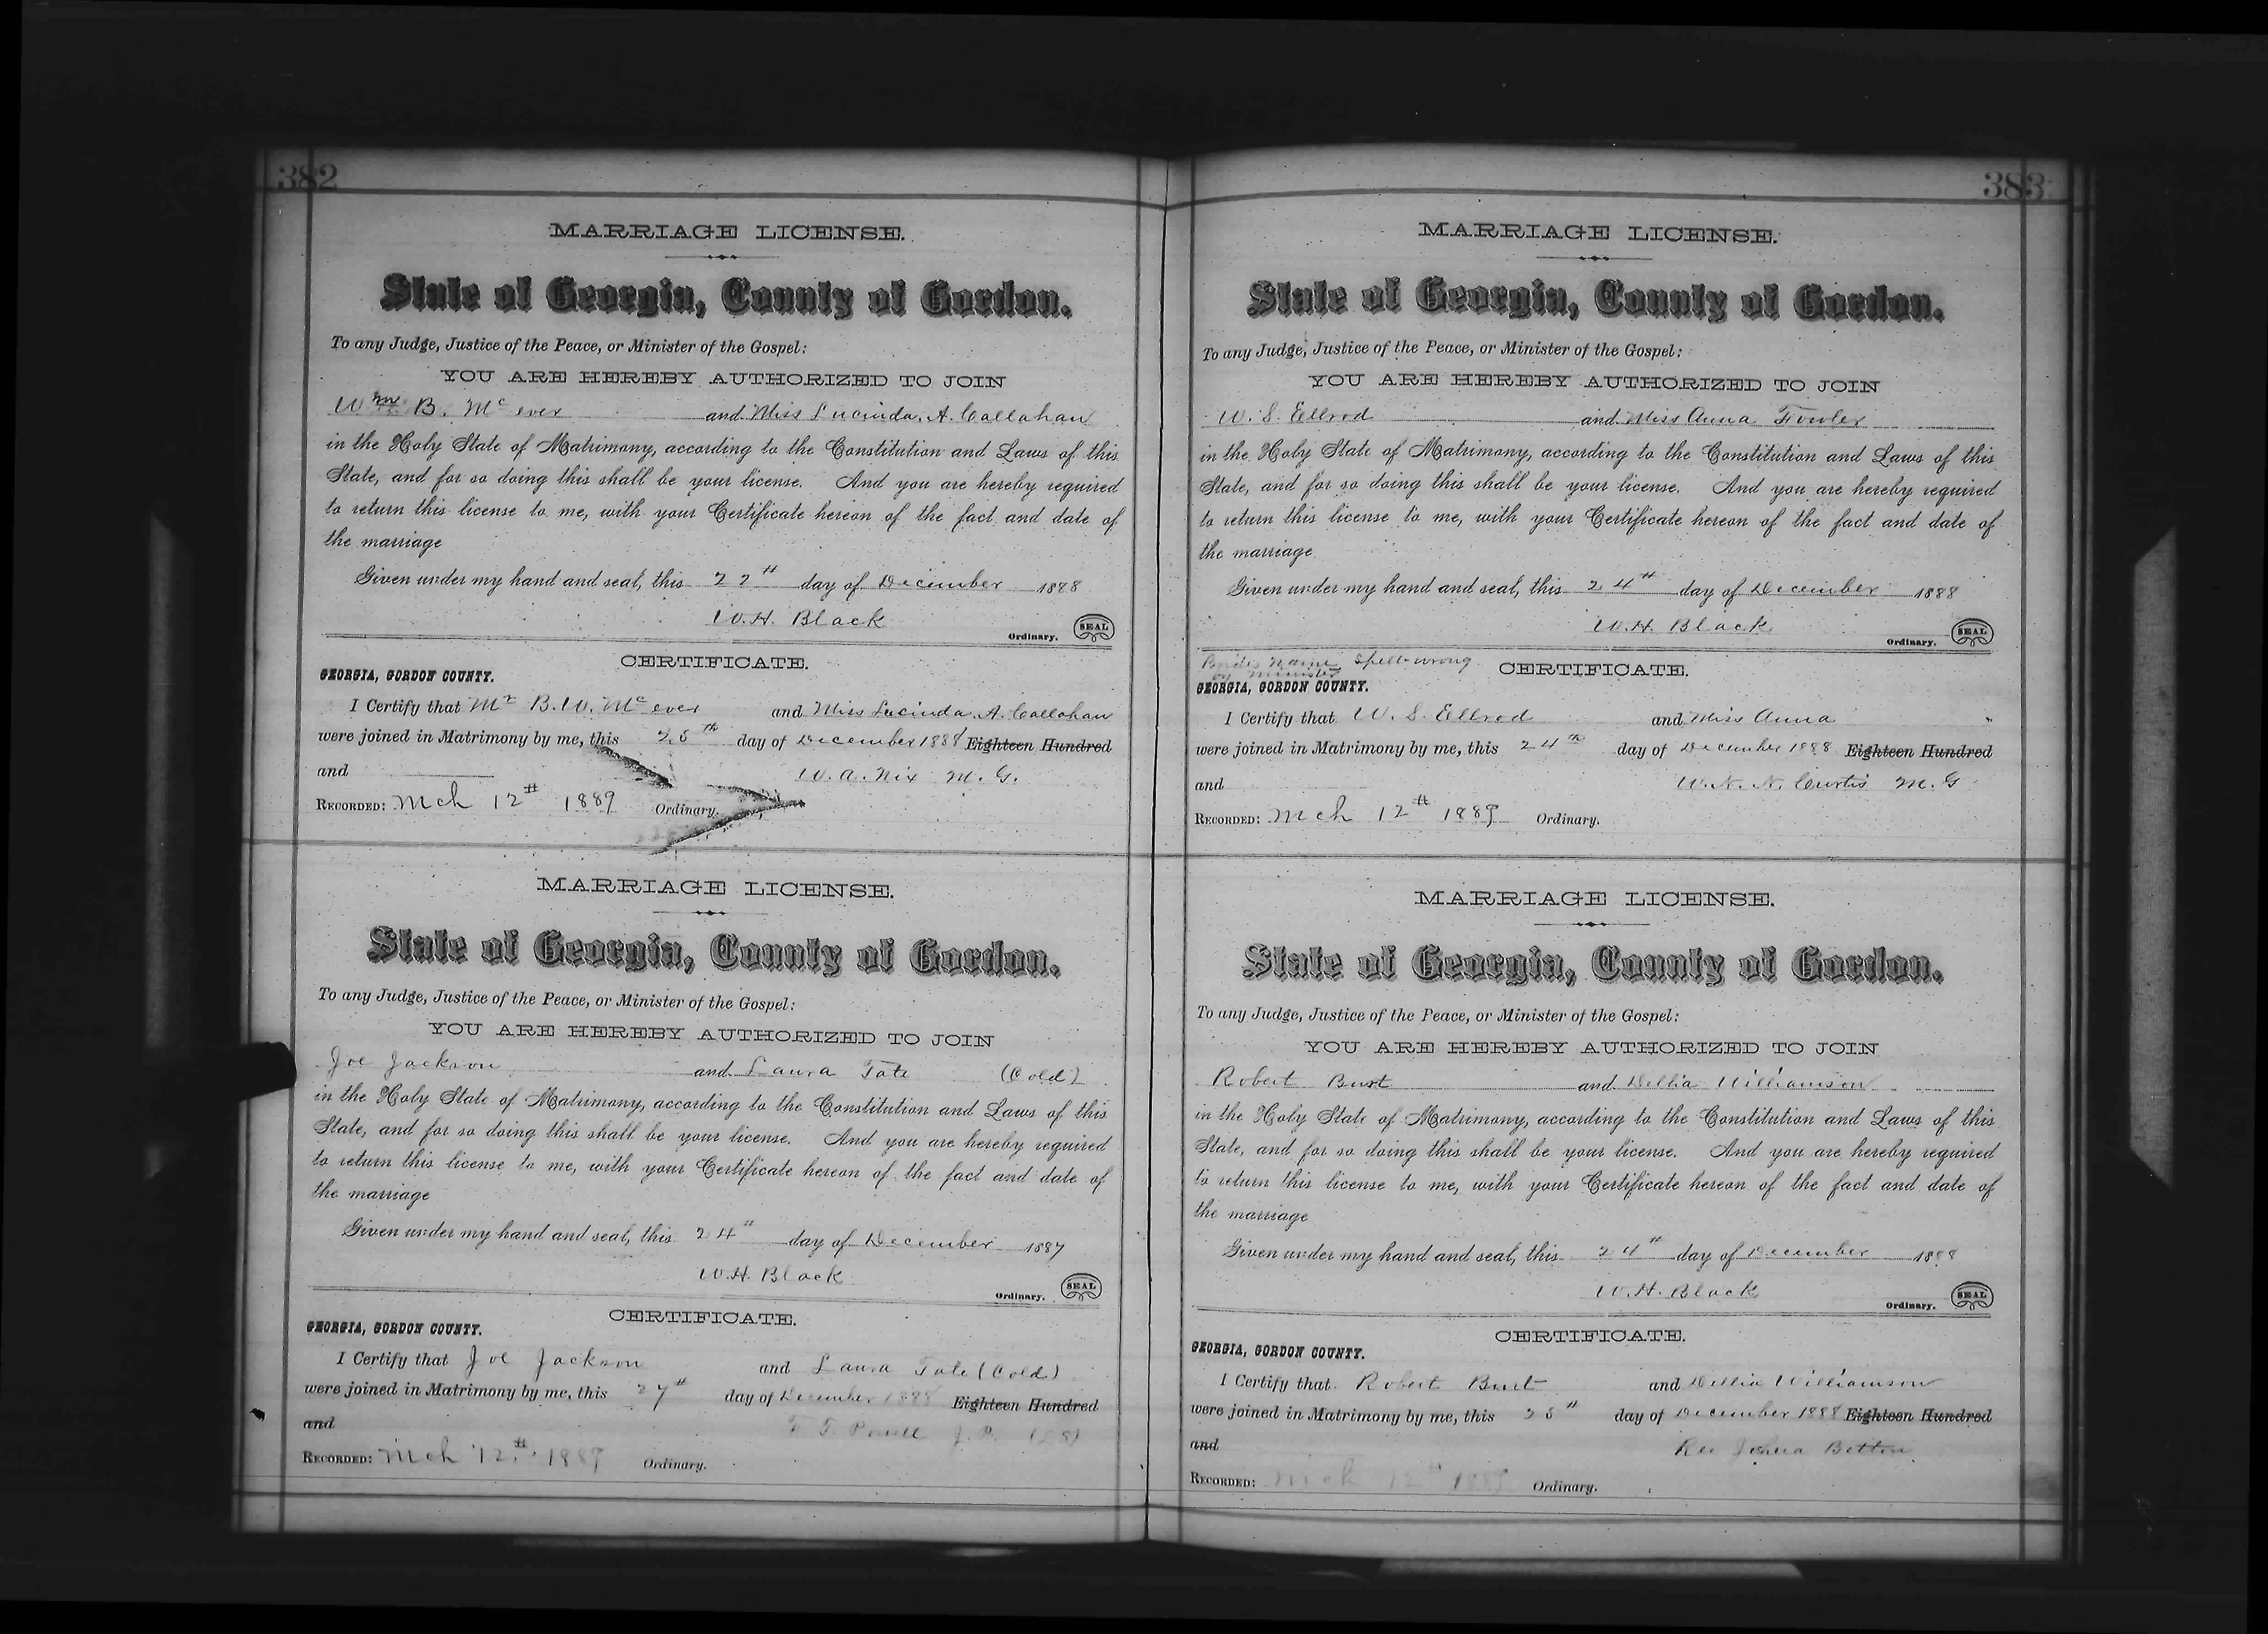 382
MARRIAGE LICENSE.
State of Georgia, County of Gordon.
To any Judge, Justice of the Peace, or Minister of the Gospel:
YOU ARE HEREBY AUTHORIZED TO JOIN
Wm B. Mc ever and Miss Lucinda. A. Callahan
in the Holy State of Matrimony, according to the Constitution and Laws of this
State, and for so doing this shall be your license. And you are hereby required
to return this license to me, with your Certificate hereon of the fact and date of
the marriage
Given under my hand and seal, this 22th day of December 1888
W. H. Black
Ordinary. SEAL
CERTIFICATE.
GEORGIA, GORDON COUNTY.
I Certify that Mr B. W. Mc ever and Miss Lucinda. A. Callahan
were joined in Matrimony by me, this 25th day of December 1888 Eighteen Hundred
and W. A. Nix M. G.
RECORDED: Mch 12th 1889 Ordinary.
MARRIAGE LICENSE.
State of Georgia, County of Gordon.
To any Judge, Justice of the Peace, or Minister of the Gospel:
YOU ARE HEREBY AUTHORIZED TO JOIN
Joe Jackson and Laura Tate (Cold)
in the Holy State of Matrimony, according to the Constitution and Laws of this
State, and for so doing this shall be your license. And you are hereby required
to return this license to me, with your Certificate hereon of the fact and date of
the marriage
Given under my hand and seal, this 24th day of December 1887
W. H. Black
Ordinary. SEAL
CERTIFICATE.
GEORGIA, GORDON COUNTY.
I Certify that Joe Jackson and Laura Tate (Cold)
were joined in Matrimony by me, this 27th day of December 1888 Eighteen Hundred
and Powell J. P. (LS)
RECORDED: Mch 12th 1889 Ordinary.
383
MARRIAGE LICENSE.
State of Georgia, County of Gordon.
To any Judge, Justice of the Peace, or Minister of the Gospel:
YOU ARE HEREBY AUTHORIZED TO JOIN
W. S. Ellrod and Miss Anna Fowler
in the Holy State of Matrimony, according to the Constitution and Laws of this
State, and for so doing this shall be your license. And you are hereby required
to return this license to me, with your Certificate hereon of the fact and date of
the marriage
Given under my hand and seal, this 24th day of December 1888
W. H. Black
Ordinary. SEAL
Brides name Spelt wrong
by minister
CERTIFICATE.
GEORGIA, GORDON COUNTY.
I Certify that W. S. Ellrod and Miss Anna "
were joined in Matrimony by me, this 24th day of December 1888 Eighteen Hundred
and W. N. N. Curtis M. G
RECORDED: Mch 12th 1889 Ordinary.
MARRIAGE LICENSE.
State of Georgia, County of Gordon.
To any Judge, Justice of the Peace, or Minister of the Gospel:
YOU ARE HEREBY AUTHORIZED TO JOIN
Robert Burt and Dellia Williamson
in the Holy State of Matrimony, according to the Constitution and Laws of this
State, and for so doing this shall be your license. And you are hereby required
to return this license to me, with your Certificate hereon of the fact and date of
the marriage
Given under my hand and seal, this 24th day of December 1888
W. H. Black
Ordinary. SEAL
CERTIFICATE.
GEORGIA, GORDON COUNTY.
I Certify that Robert Burt and Dellia Williamson
were joined in Matrimony by me, this 25th day of December 1888 Eighteen Hundred
and Rev Joshua Betton
RECORDED: Mch 12th 1889 Ordinary.